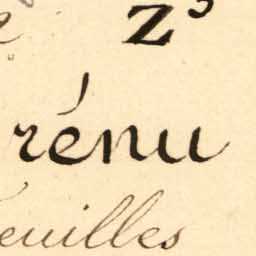 z³
rénu
euilles